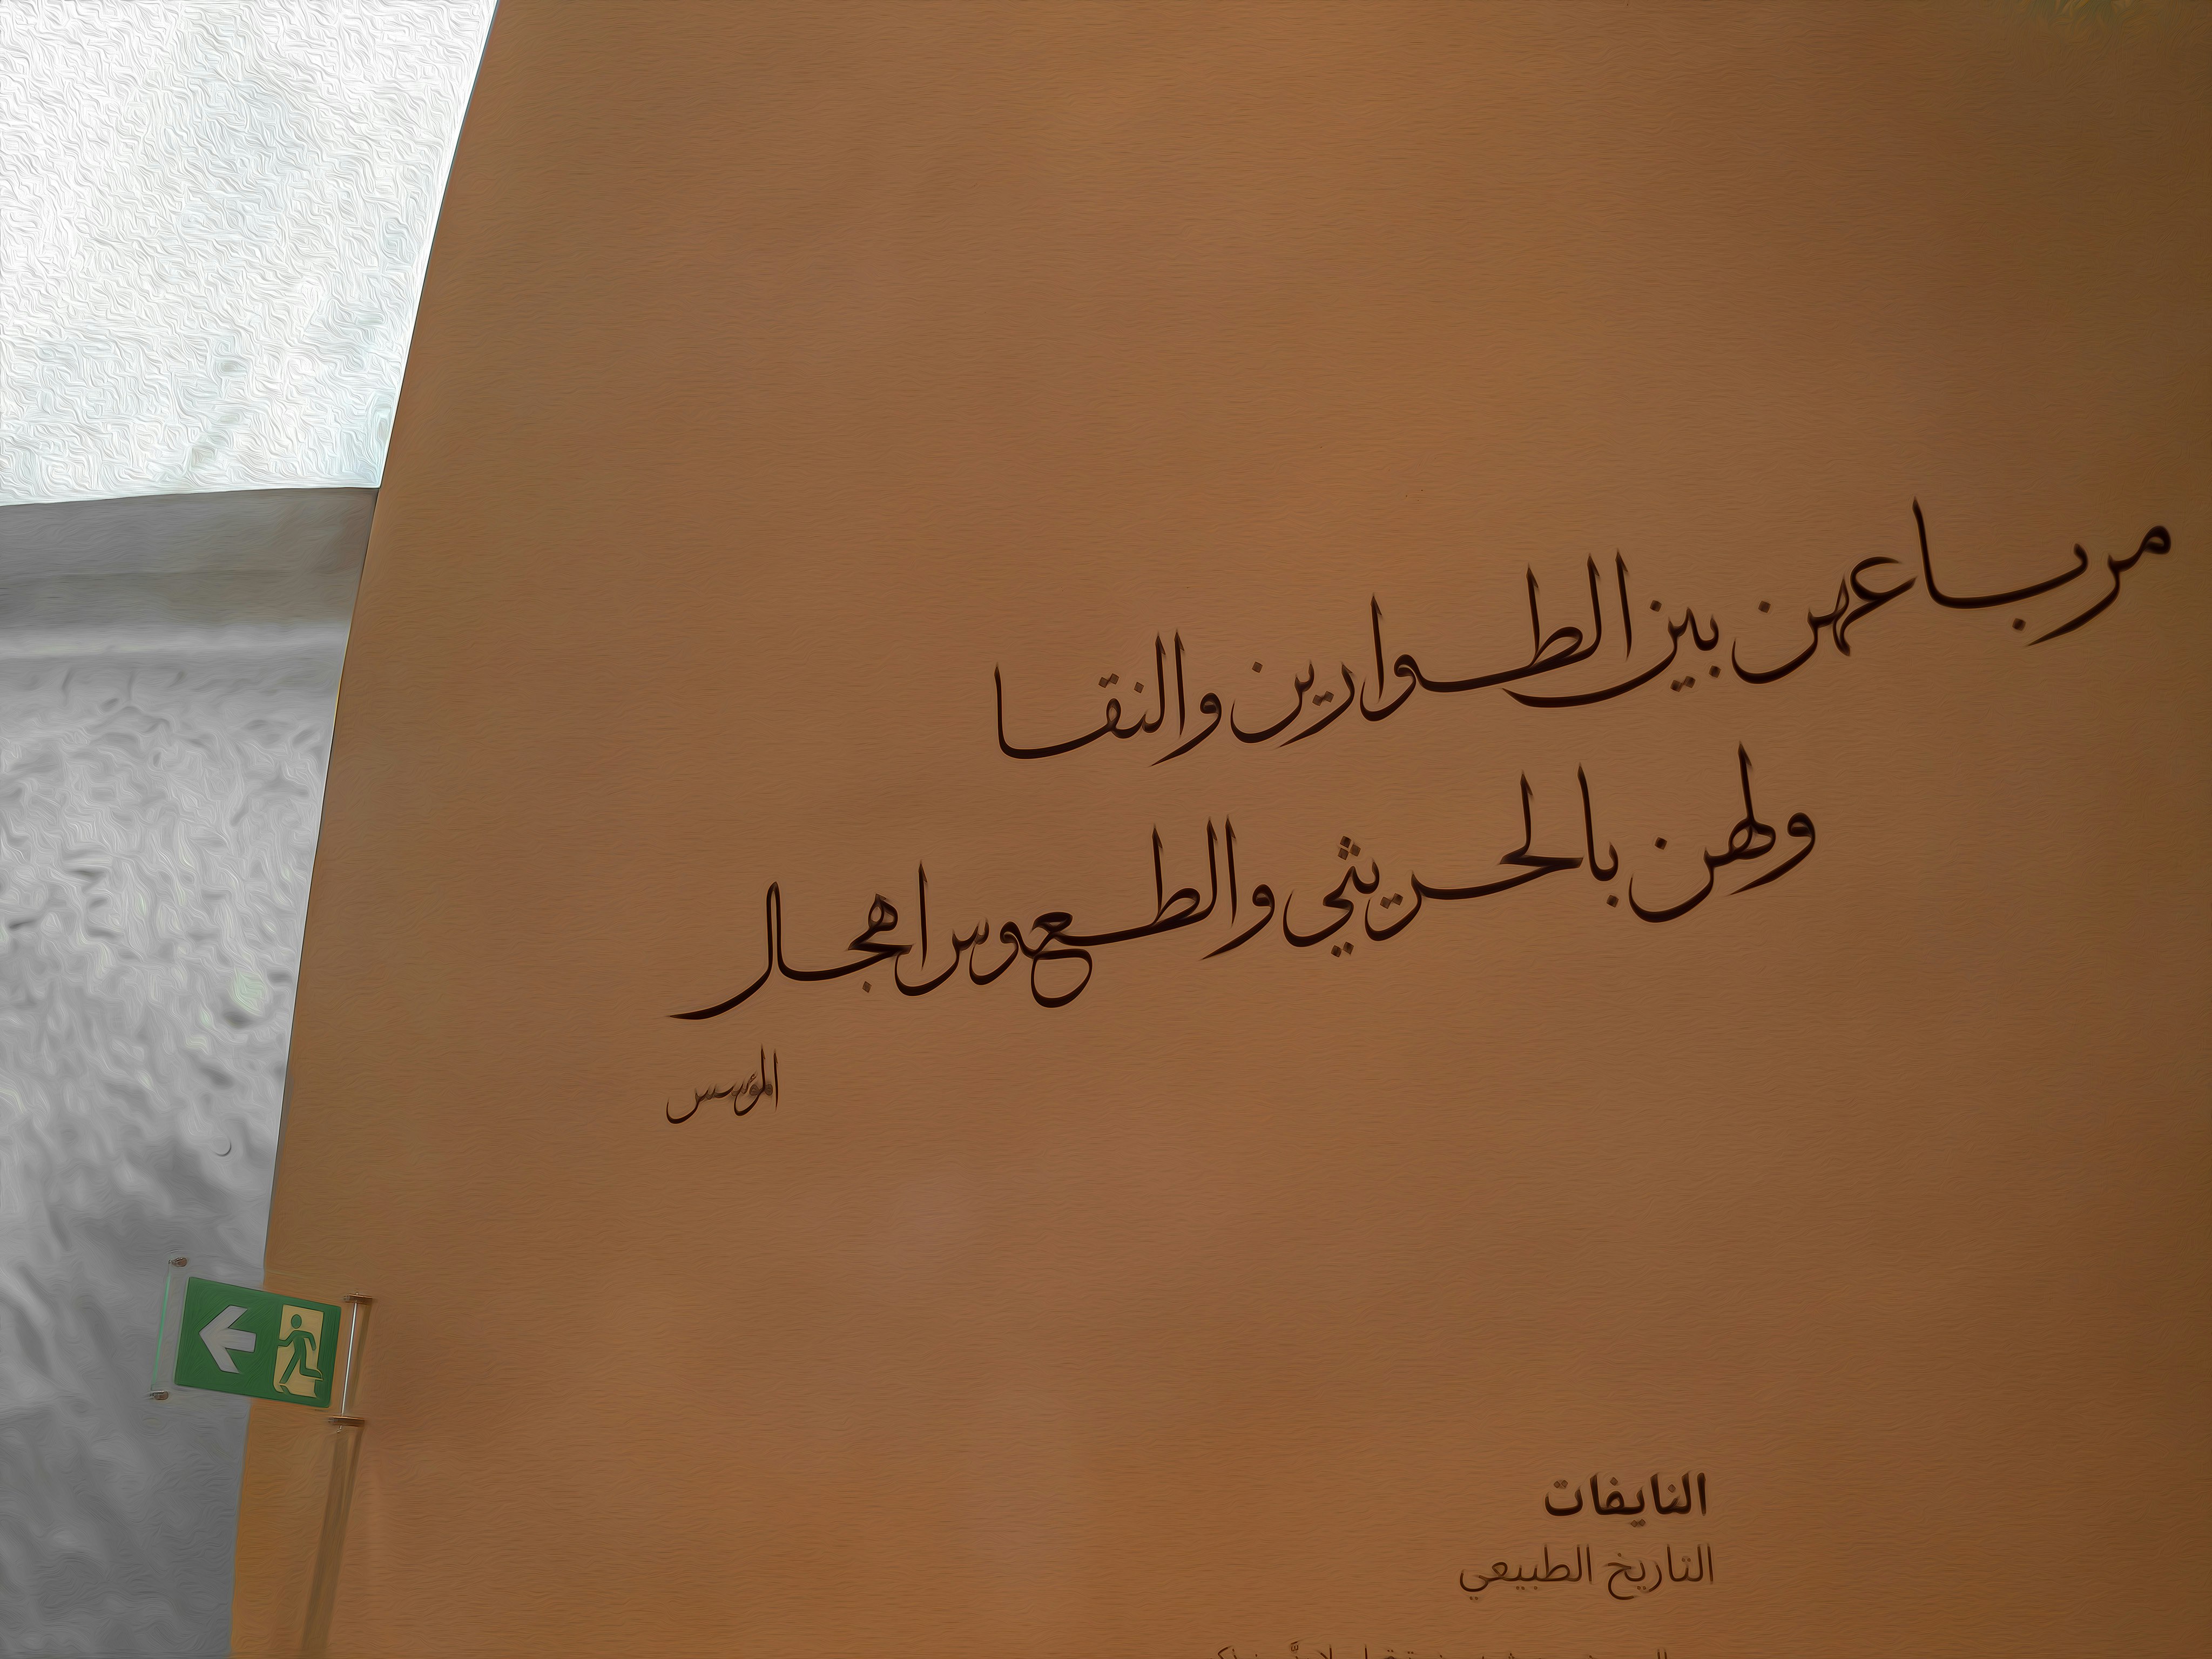 مرباعهن بين الطوارين والنقا
ولهن بالحريثي والطعوس اهجال
المؤسس
النايفات
التاريخ الطبيعي